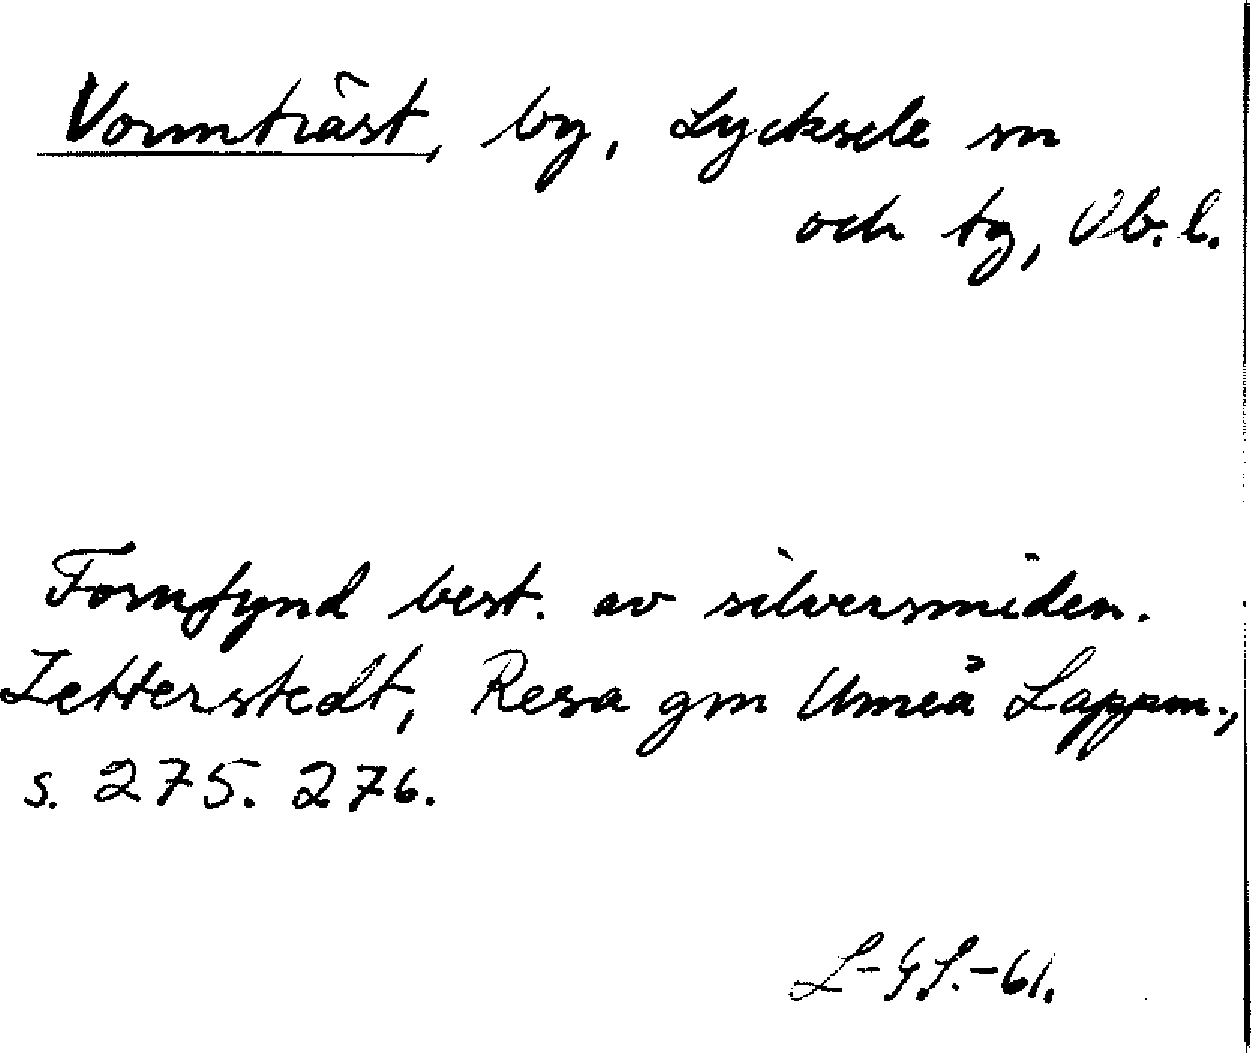 Vormträst, by, Lycksele sn
och tg, Vb. l.
Fornfynd best. av silversmiden.
Zetterstedt, Resa gm Umeå Lappm.,
s. 275. 276.
L-G.S.-61.